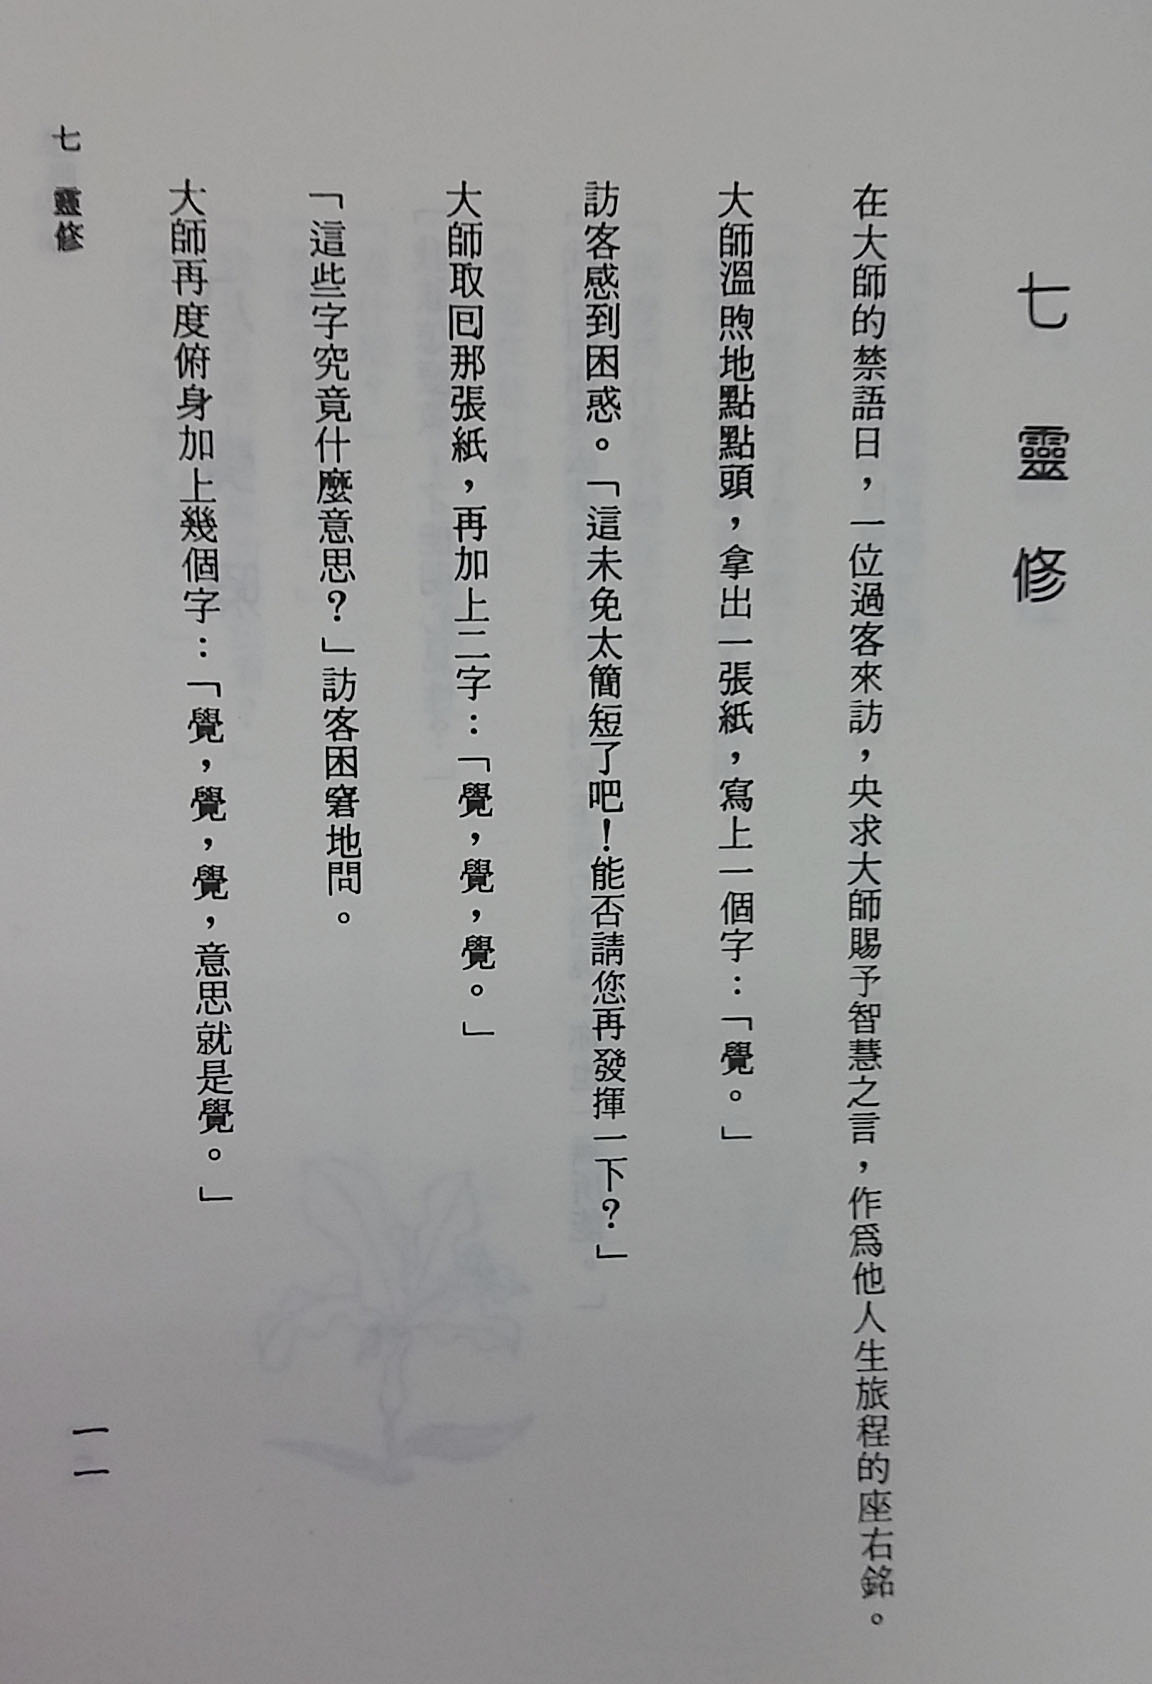 七 靈修
在大師的禁語日，一位過客來訪，央求大師賜予智慧之言，作爲他人生旅程的座右銘。
大師溫煦地點點頭，拿出一張紙，寫上一個字：「覺。」
訪客感到困惑。「這未免太簡短了吧！能否請您再發揮一下？」
大師取回那張紙，再加上二字：「覺，覺，覺。」
「這些字究竟什麼意思？」訪客困窘地問。
大師再度俯身加上幾個字：「覺，覺，覺，意思就是覺。」
七 靈修
一一